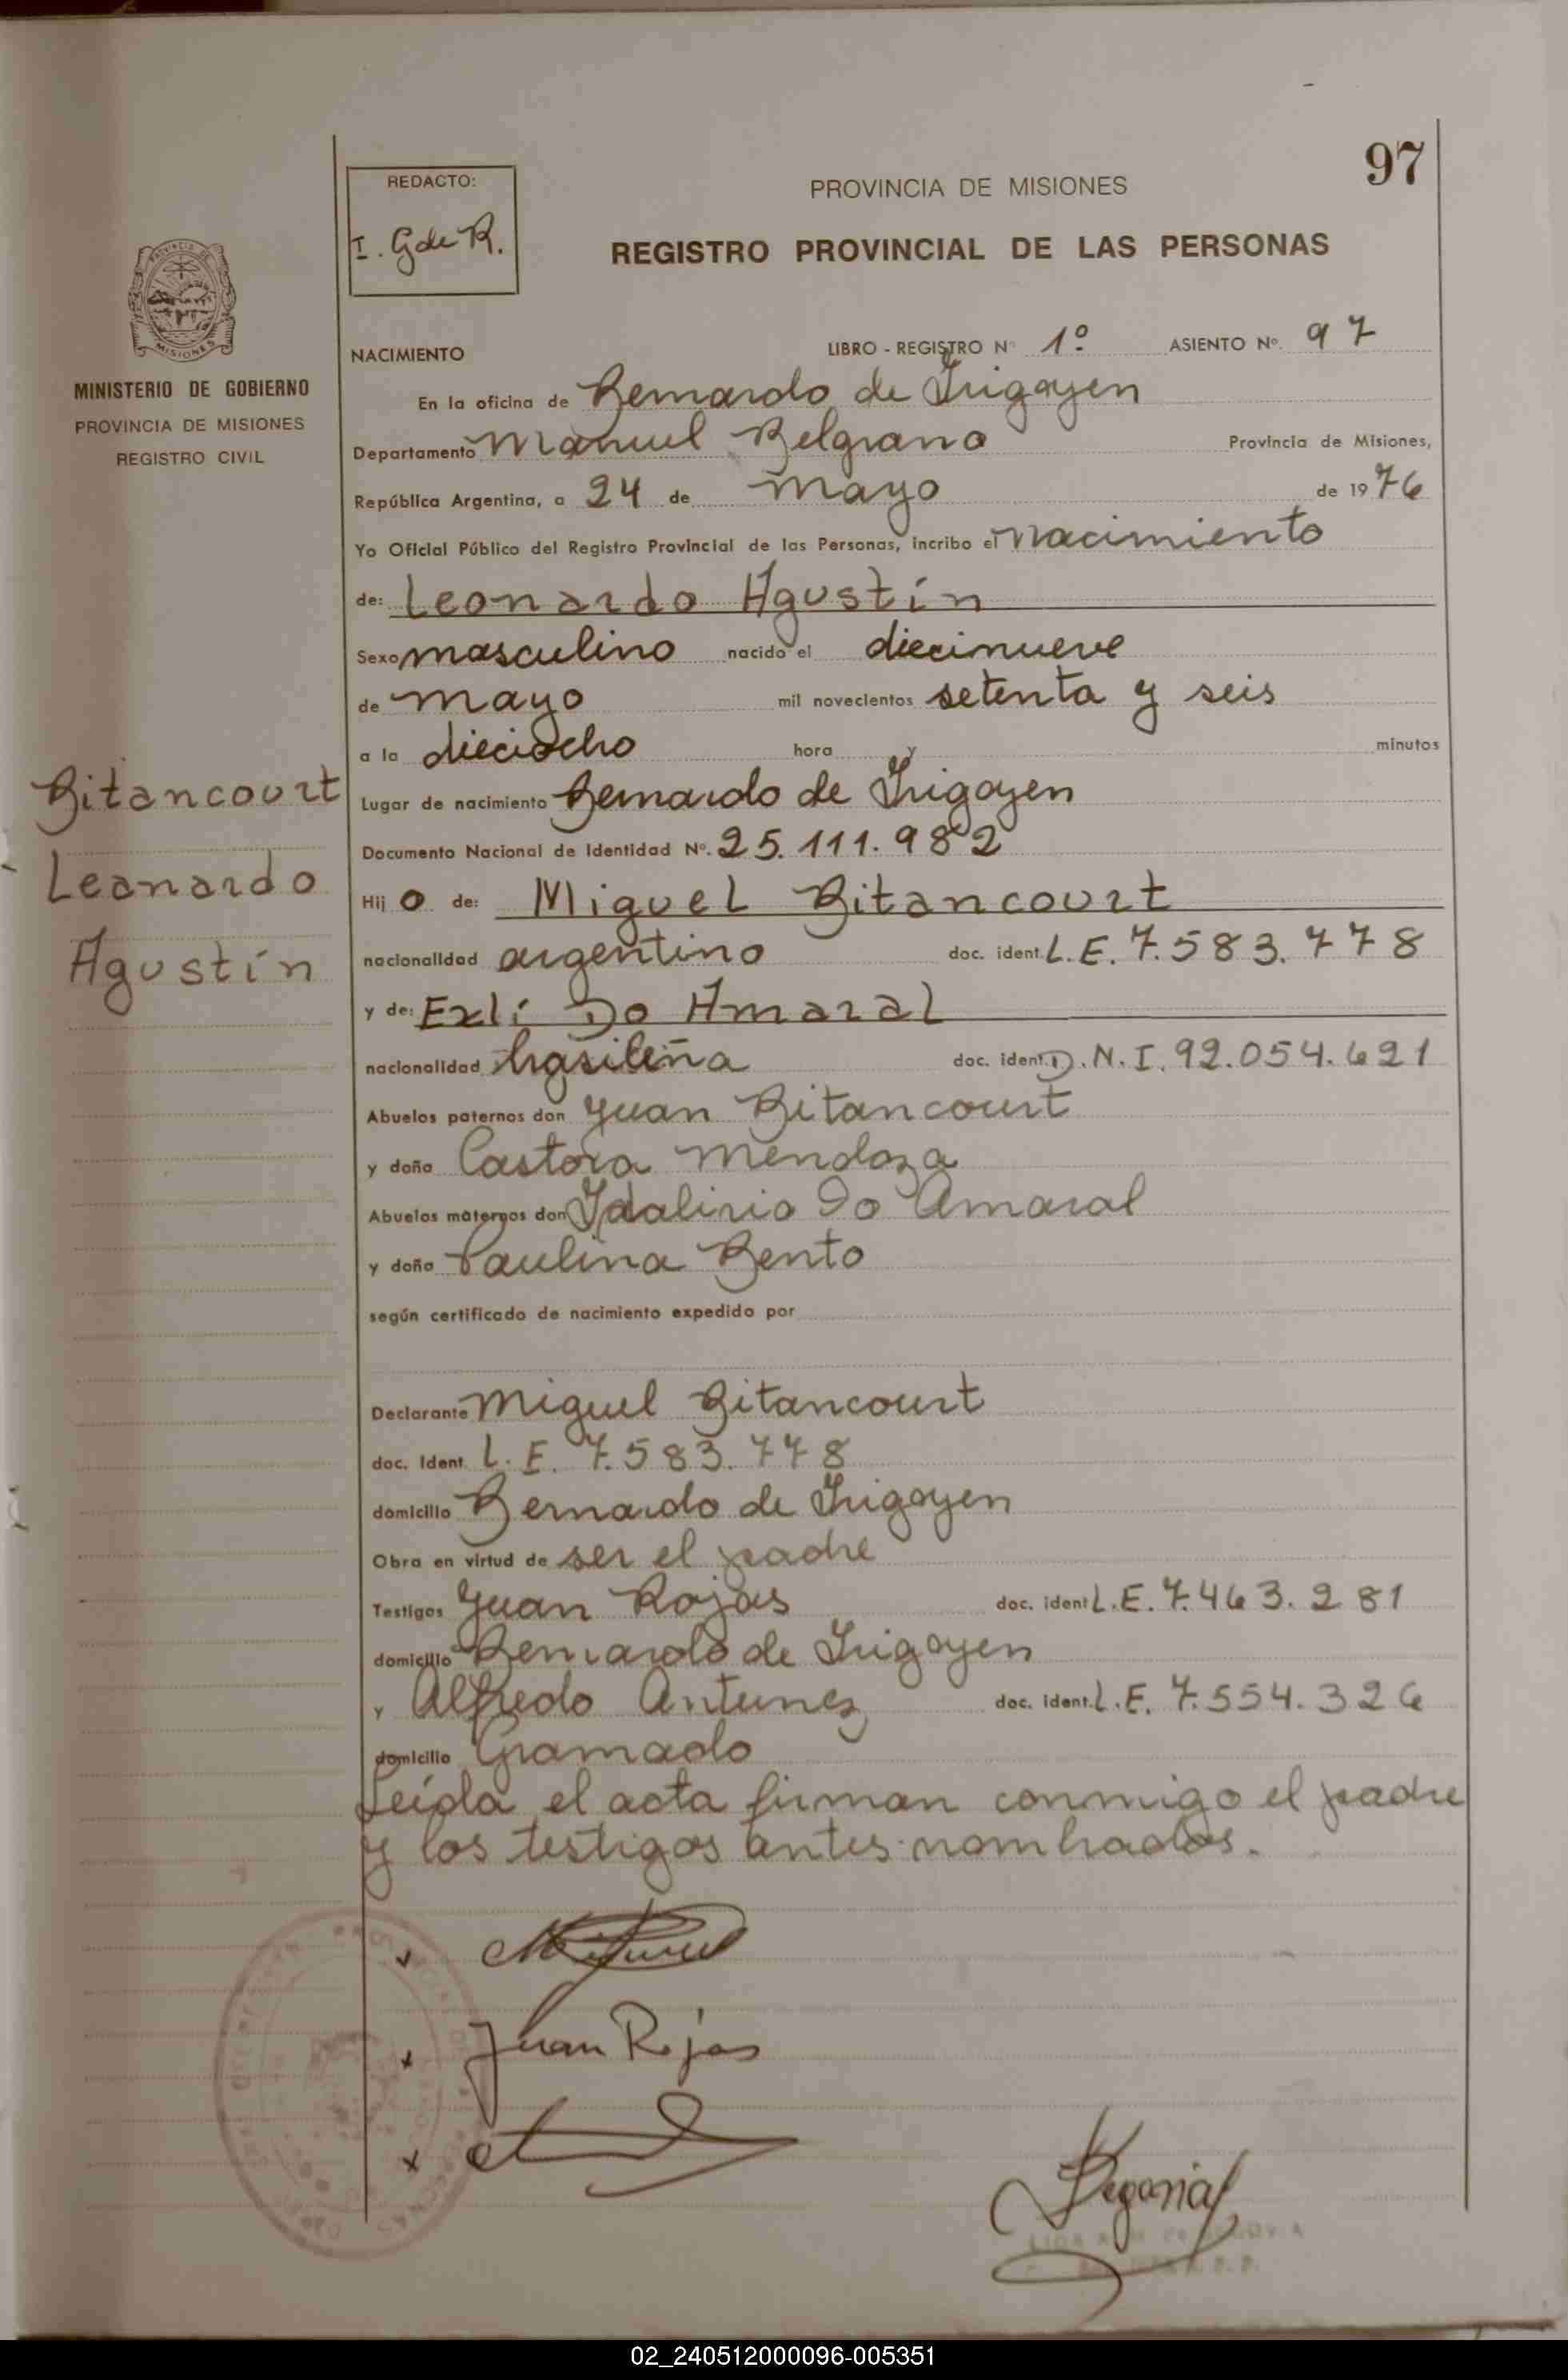 97
REDACTO:
I. G de R.
PROVINCIA DE MISIONES
REGISTRO PROVINCIAL DE LAS PERSONAS
MISIONES
MINISTERIO DE GOBIERNO
PROVINCIA DE MISIONES
REGISTRO CIVIL
NACIMIENTO LIBRO - REGISTRO Nº 1º ASIENTO Nº. 97
En la oficina de Bernardo de Irigoyen
Departamento Manuel Belgrano Provincia de Misiones,
República Argentina, a 24 de mayo de 1976
Yo Oficial Público del Registro Provincial de las Personas, incribo el nacimiento
de: Leonardo Agustín
Sexo masculino nacido el diecinueve
de mayo mil novecientos setenta y seis
a la dieciocho hora y minutos
Bitancourt
Leonardo
Agustín
Lugar de nacimiento Bernardo de Irigoyen
Documento Nacional de Identidad Nº. 25.111.982
Hij o de: Miguel Bitancourt
nacionalidad argentino doc. ident. L.E. 7.583.778
y de: Exli Do Amaral
nacionalidad brasileña doc. ident. D.N.I. 92.054.621
Abuelos paternos don Juan Bitancourt
y doña Castora Mendoza
Abuelos maternos don Idalirio Do Amaral
y doña Paulina Bento
según certificado de nacimiento expedido por
Declarante Miguel Bitancourt
doc. Ident. L.E. 7.583.778
domicilio Bernardo de Irigoyen
Obra en virtud de ser el padre
Testigos Juan Rojas doc. ident L.E. 7.463.281
domicilio Bernardo de Irigoyen
y Alfredo Antunez doc. ident. L.E. 7.554.326
domicilio Gramado
Leída el acta firman conmigo el padre
y los testigos antes nombrados.
Juan Rojas
02_240512000096-005351